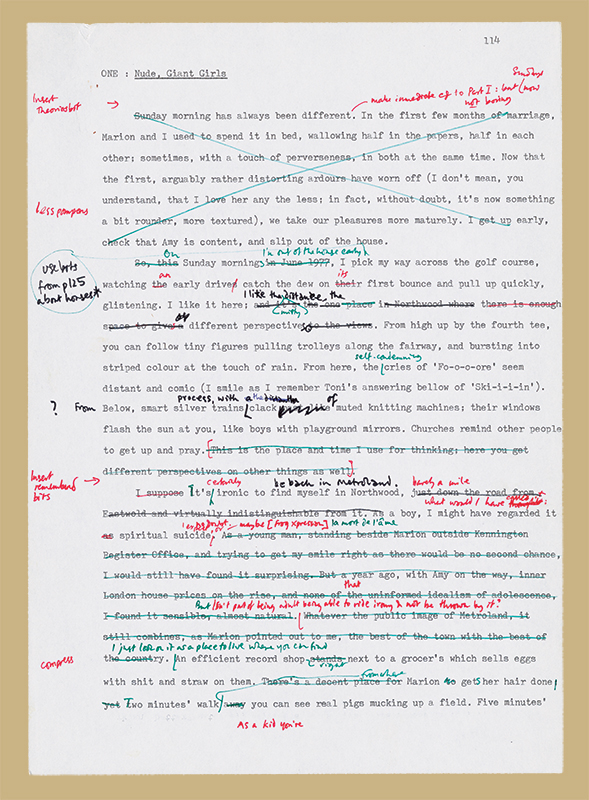 114
ONE : Nude, Giant Girls
Sundays
Insert
make immediate
to Part I: but (now
not boring
Sunday morning has always been different. In the first few months of marriage,
Marion and I used to spend it in bed, wallowing half in the papers, half in each
other: sometimes, with a touch of perverseness, in both at the same time. Now that
the first, arguably rather distorting ardours have worn off (I don't mean, you
understand, that I love her any the less: in fact, without doubt, it's now something
Less pompous
a bit rounder, more textured), we take our pleasures more maturely. I get up early,
check that Amy is content, and slip out of the house.
On
I'm out of the house early &
So, this Sunday morning in June 1977, I pick my way across the golf course,
use bits
from p125
about horses
an
its
watching the early drive catch the dew on their first bounce and pull up quickly,
I like the distance, the
glistening. I like it here; and it's the one place in Northwood where there is enough
(mistly)
space to give a different perspective to the views. From high up by the fourth tee,
you can follow tiny figures pulling trolleys along the fairway, and bursting into
self-condemning
striped colour at the touch of rain. From here, the cries of 'Fo-o-o-ore' seem
distant and comic (I smile as I remember Toni's answering bellow of 'Ski-i-i-in').
process, with a the distant of
? From Below, smart silver trains clack like muted knitting machines; their windows
flash the sun at you, like boys with playground mirrors. Churches remind other people
to get up and pray. This is the place and time I use for thinking; here you get
different perspectives on other things as well.
Insert
remembered
bits
certainly
be back in Metroland.
barely a mile
I suppose It's ironic to find myself in Northwood, just down the road from
what would I have called
Eastwold and virtually indistinguishable from it. As a boy, I might have regarded it
maybe
la mort de l'âme
as spiritual suicide. As a young man, standing beside Marion outside Kennington
Register Office, and trying to get my smile right as there would be no second chance,
I would still have found it surprising. But a year ago, with Amy on the way, inner
that
London house prices on the rise, and none of the uninformed idealism of adolescence,
But isn't part of being adult being able to ride irony & not be thrown by it?
I found it sensible, almost natural. Whatever the public image of Metroland, it
still combines, as Marion pointed out to me, the best of the town with the best of
I just look on it as a place to live where you can find
the country. An efficient record shop stands next to a grocer's which sells eggs
compress
right
from where
with shit and straw on them. There's a decent place for Marion to gets her hair done
yet Two minutes' walk away you can see real pigs mucking up a field. Five minutes'
As a kid you're